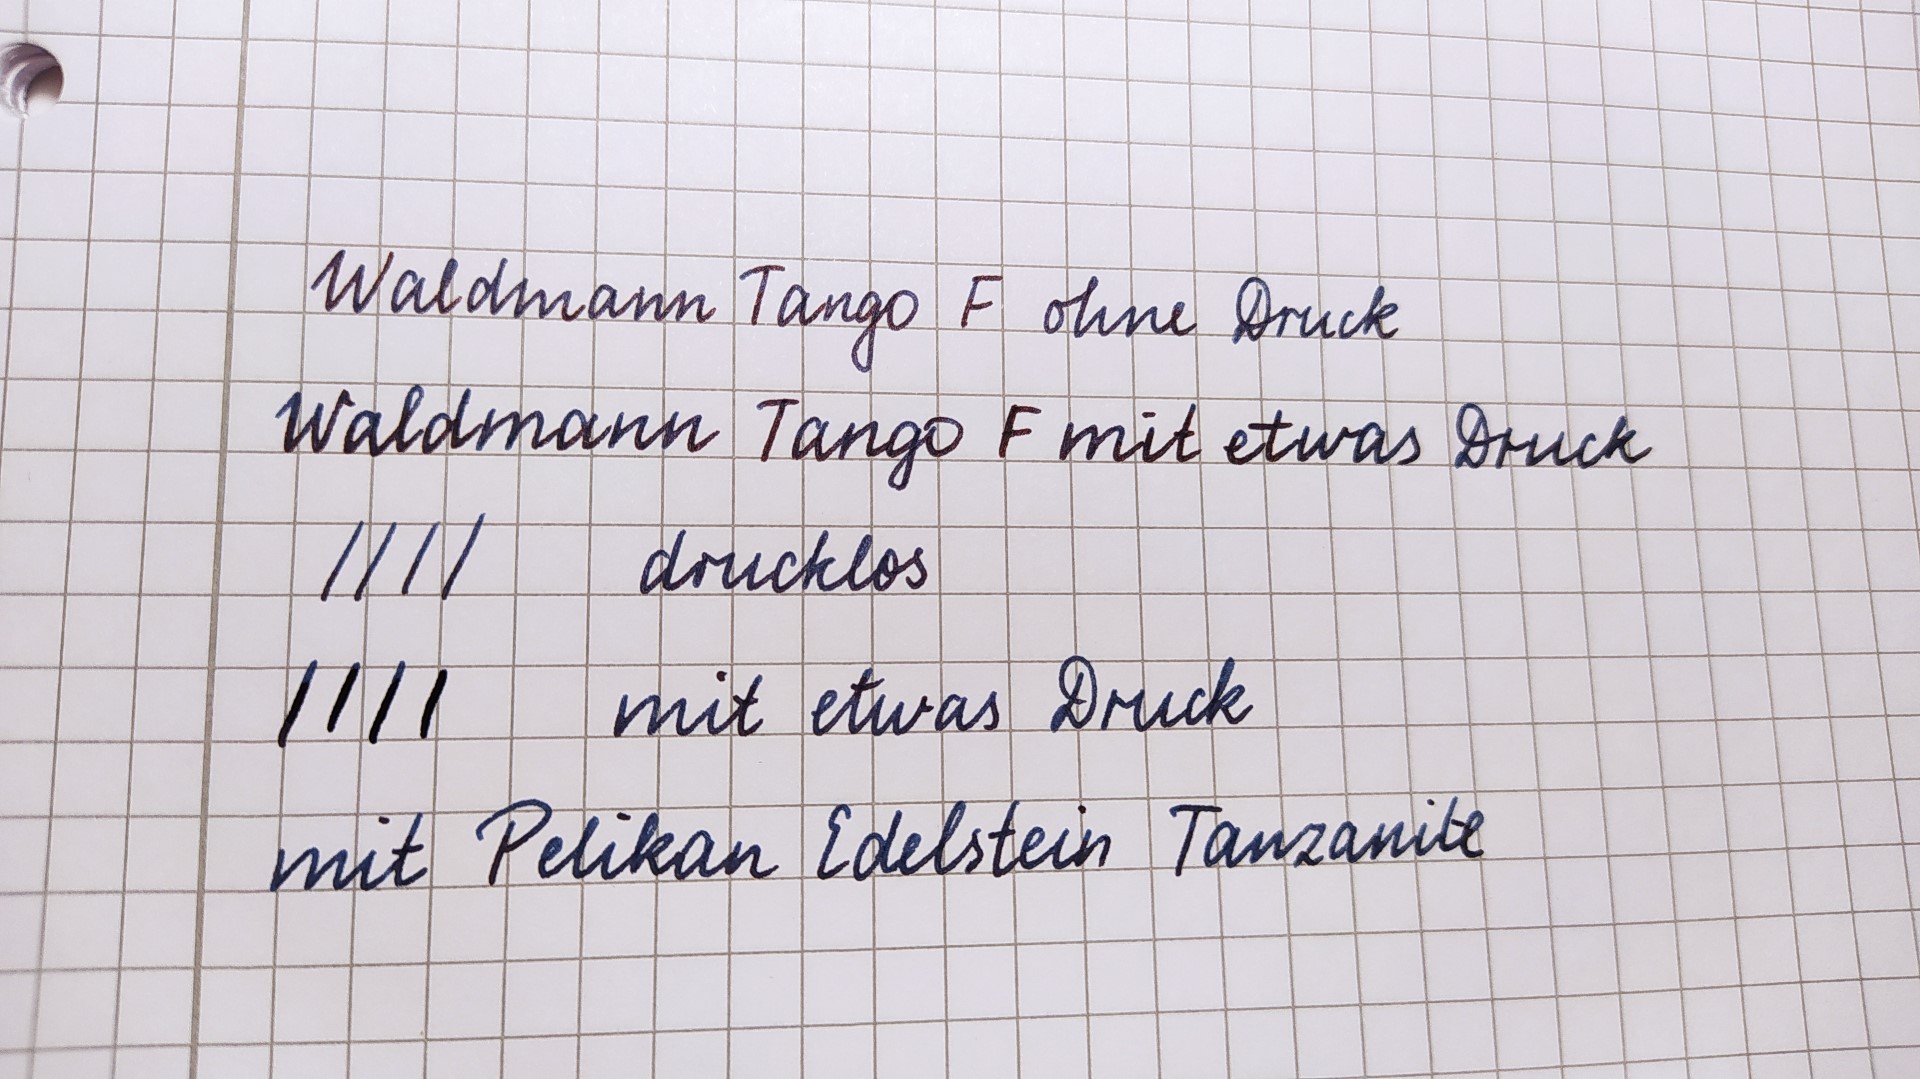 Waldmann Tango F ohne Druck
Waldmann Tango F mit etwas Druck
//// drucklos
//// mit etwas Druck
mit Pelikan Edelstein Tanzanite